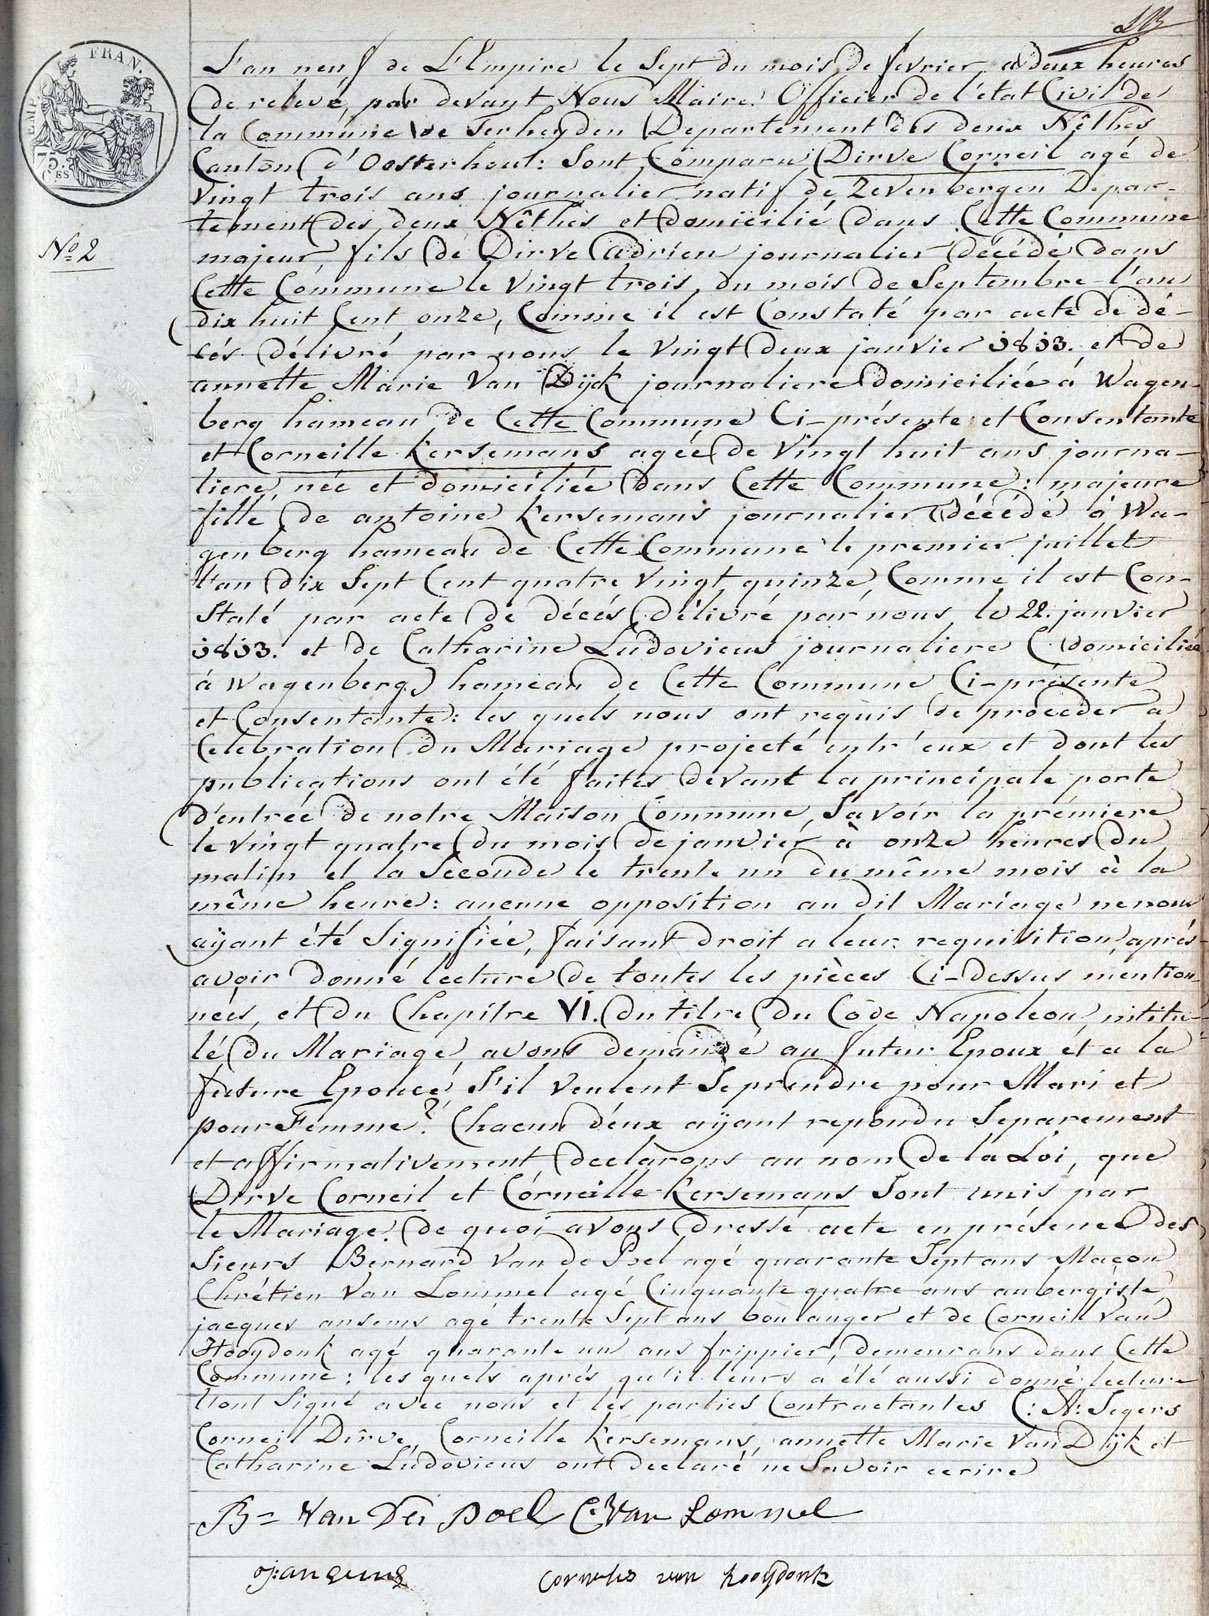 L'an neuf de L'Empire le Sept du mois de fevrier a deux heures
de relevé, par devant Nous Maire Officier de l'état Civil de
la Commune de Terheyden Departement des deux Nêthes
Canton d'Oosterhout: Sont Comparu Dirve Corneil agé de
Vingt trois ans journalier natif de Zevenbergen Depar-
tement des deux Nêthes et domicilié dans Cette Commune
majeur fils de Dirve Adrien journalier décédé dans
Cette Commune le Vingt trois du mois de Septembre l'an
dix huit Cent onze, Comme il est Constaté par acte de dé-
cés délivré par nous le Vingt deux janvier 1813. et de
annette Marie Van Dijck journaliere domiciliée à Wagen-
berg hameau de Cette Commune Ci-présente et Consentante
et Corneille Kersemans agée de Vingt huit ans journa-
liere née et domiciliée dans Cette Commune; majeure
fille de antoine Kersemans journalier décédé à Wa-
genberg hameau de Cette Commune le premier juillet
l'an dix Sept Cent quatre Vingt quinze, Comme il est Con-
staté par acte de décés délivré par nous le 22. janvier
1813. et de Catharine Ludovicus journaliere (domiciliée
à Wagenberg) hameau de Cette Commune Ci-présente
et Consentante: les quels nous ont requis de proceder a
Celebration du Mariage projecté entr'eux et dont les
publications ont été faites devant la principale porte
d'entrée de notre Maison Commune, Savoir la prémiere
le Vingt quatre du mois de janvier à onze heures du
matin et la Seconde le trente un du même mois à la
même heure: aucune opposition au dit Mariage ne nous
aÿant été Signifiée, faisant droit a leur requisition, aprés
avoir donné lecture de toutes les pièces Ci-dessus mention-
nées, et du Chapitre VI. du titre du Code Napoleon intitu-
lé du Mariage, avons demandé au futur Epoux et a la
future Epouce, S'il veulent Se prendre pour Mari et
pour Femme? Chacun d'eux aÿant repondu Separement
et affirmativement declarons au nom de la Loi, que
Dirve Corneil et Corneille Kersemans Sont unis par
le Mariage. de quoi avons dressé acte en présence des
Sieurs Bernard Van de Poel agé quarante Sept ans Maçon
Chrétien Van Lommel agé Cinquante quatre ans aubergiste
jacques ansems agé trente Sept ans boulanger et de Corneil Van
Hooydonk agé quarante un ans frippier, demeurans dans Cette
Commune; les quels aprés qu'il leurs a été aussi donné lecture
l'ont Signé avec nous et les parties Contractantes C: A: Segers
Corneil Dirve, Corneille Kersemans, annette Marie Van Dijk et
Catharine Ludovicus ont declaré ne Savoir ecrire
B= Van Der Poel C: Van Lommel
Cornelis van hooÿdonk
No 2
FRAN.
EMP.
75.
CES